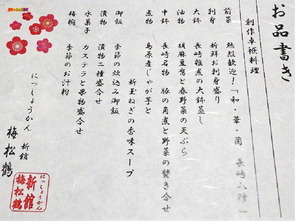 お品書き
創作卓袱料理
前菜 熱烈歓迎!「和・華・蘭 長崎入津」
刺身 新鮮お刺身盛り
大鉢 長崎雑煮の大鉢蒸し
油物 胡麻豆腐と春野菜の天ぷら
中鉢 長崎名物 豚の角煮と野菜の焚き合せ
煮物 島原産じゃが芋と
新玉ねぎの香味スープ
御飯 季節の炊込み御飯
漬物 漬物二種盛合せ
水菓子 カステラと果物盛合せ
梅椀 季節のお汁粉
にっしょうかん 新館
梅松鶴
にっしょうかん
新館
梅松鶴